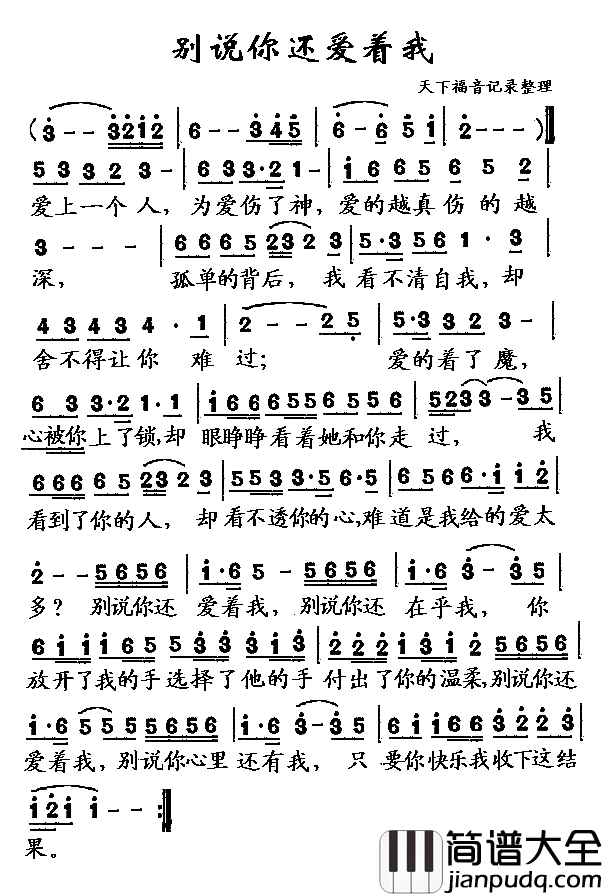 别说你还爱着我
天下福音记录整理
(3 - - 3212 | 6 - - 345 | 6 - · 6 5 1 | 2 - - - )
5 3 3 2 3 - | 6 3 3 3·2 1 - | 1 6 6 5 6 5 2 |
爱上一个人，为爱伤了神，爱的越真伤的越
3 - - - | 6 6 6 5 2 3 2 3 | 5·3 5 6 1 · 3 |
深，孤单的背后，我看不清自我，却
4 3 4 3 2 · 1 | 2 - - 2 5 | 5·3 3 3 2 3 - |
舍不得让你难过；爱的着了魔，
6 3 3·2 1·1 | 1 6 6 6 5 5 6 5 5 6 | 5 2 3 3 - 3 5 |
心被你上了锁，却眼睁睁看着她和你走过，我
6 6 6 6 5 2 3 2 3 | 5 5 3 5 5 6·5 | 6 6 5 6·1 1 2 |
看到了你的人，却看不透你的心，难道是我给的爱太
2 - - 5656 | 1·6 5 - 5656 | 1·6 3 - 3 5 |
多？别说你还爱着我，别说你还在乎我，你
6 1 1 1 6 5 5 3 3 3 3 1 3 | 2 2 2 2 1 3 1 5656 |
放开了我的手选择了他的手付出了你的温柔，别说你还
1·6 5 5 5656 | 1·6 3 - 3 5 | 6 1 1 6 6 1 3 2 2 3 |
爱着我，别说你心里还有我，只要你快乐我收下这结
1 2 1 1 - - :|
果。
简谱大全
jianpudq.com